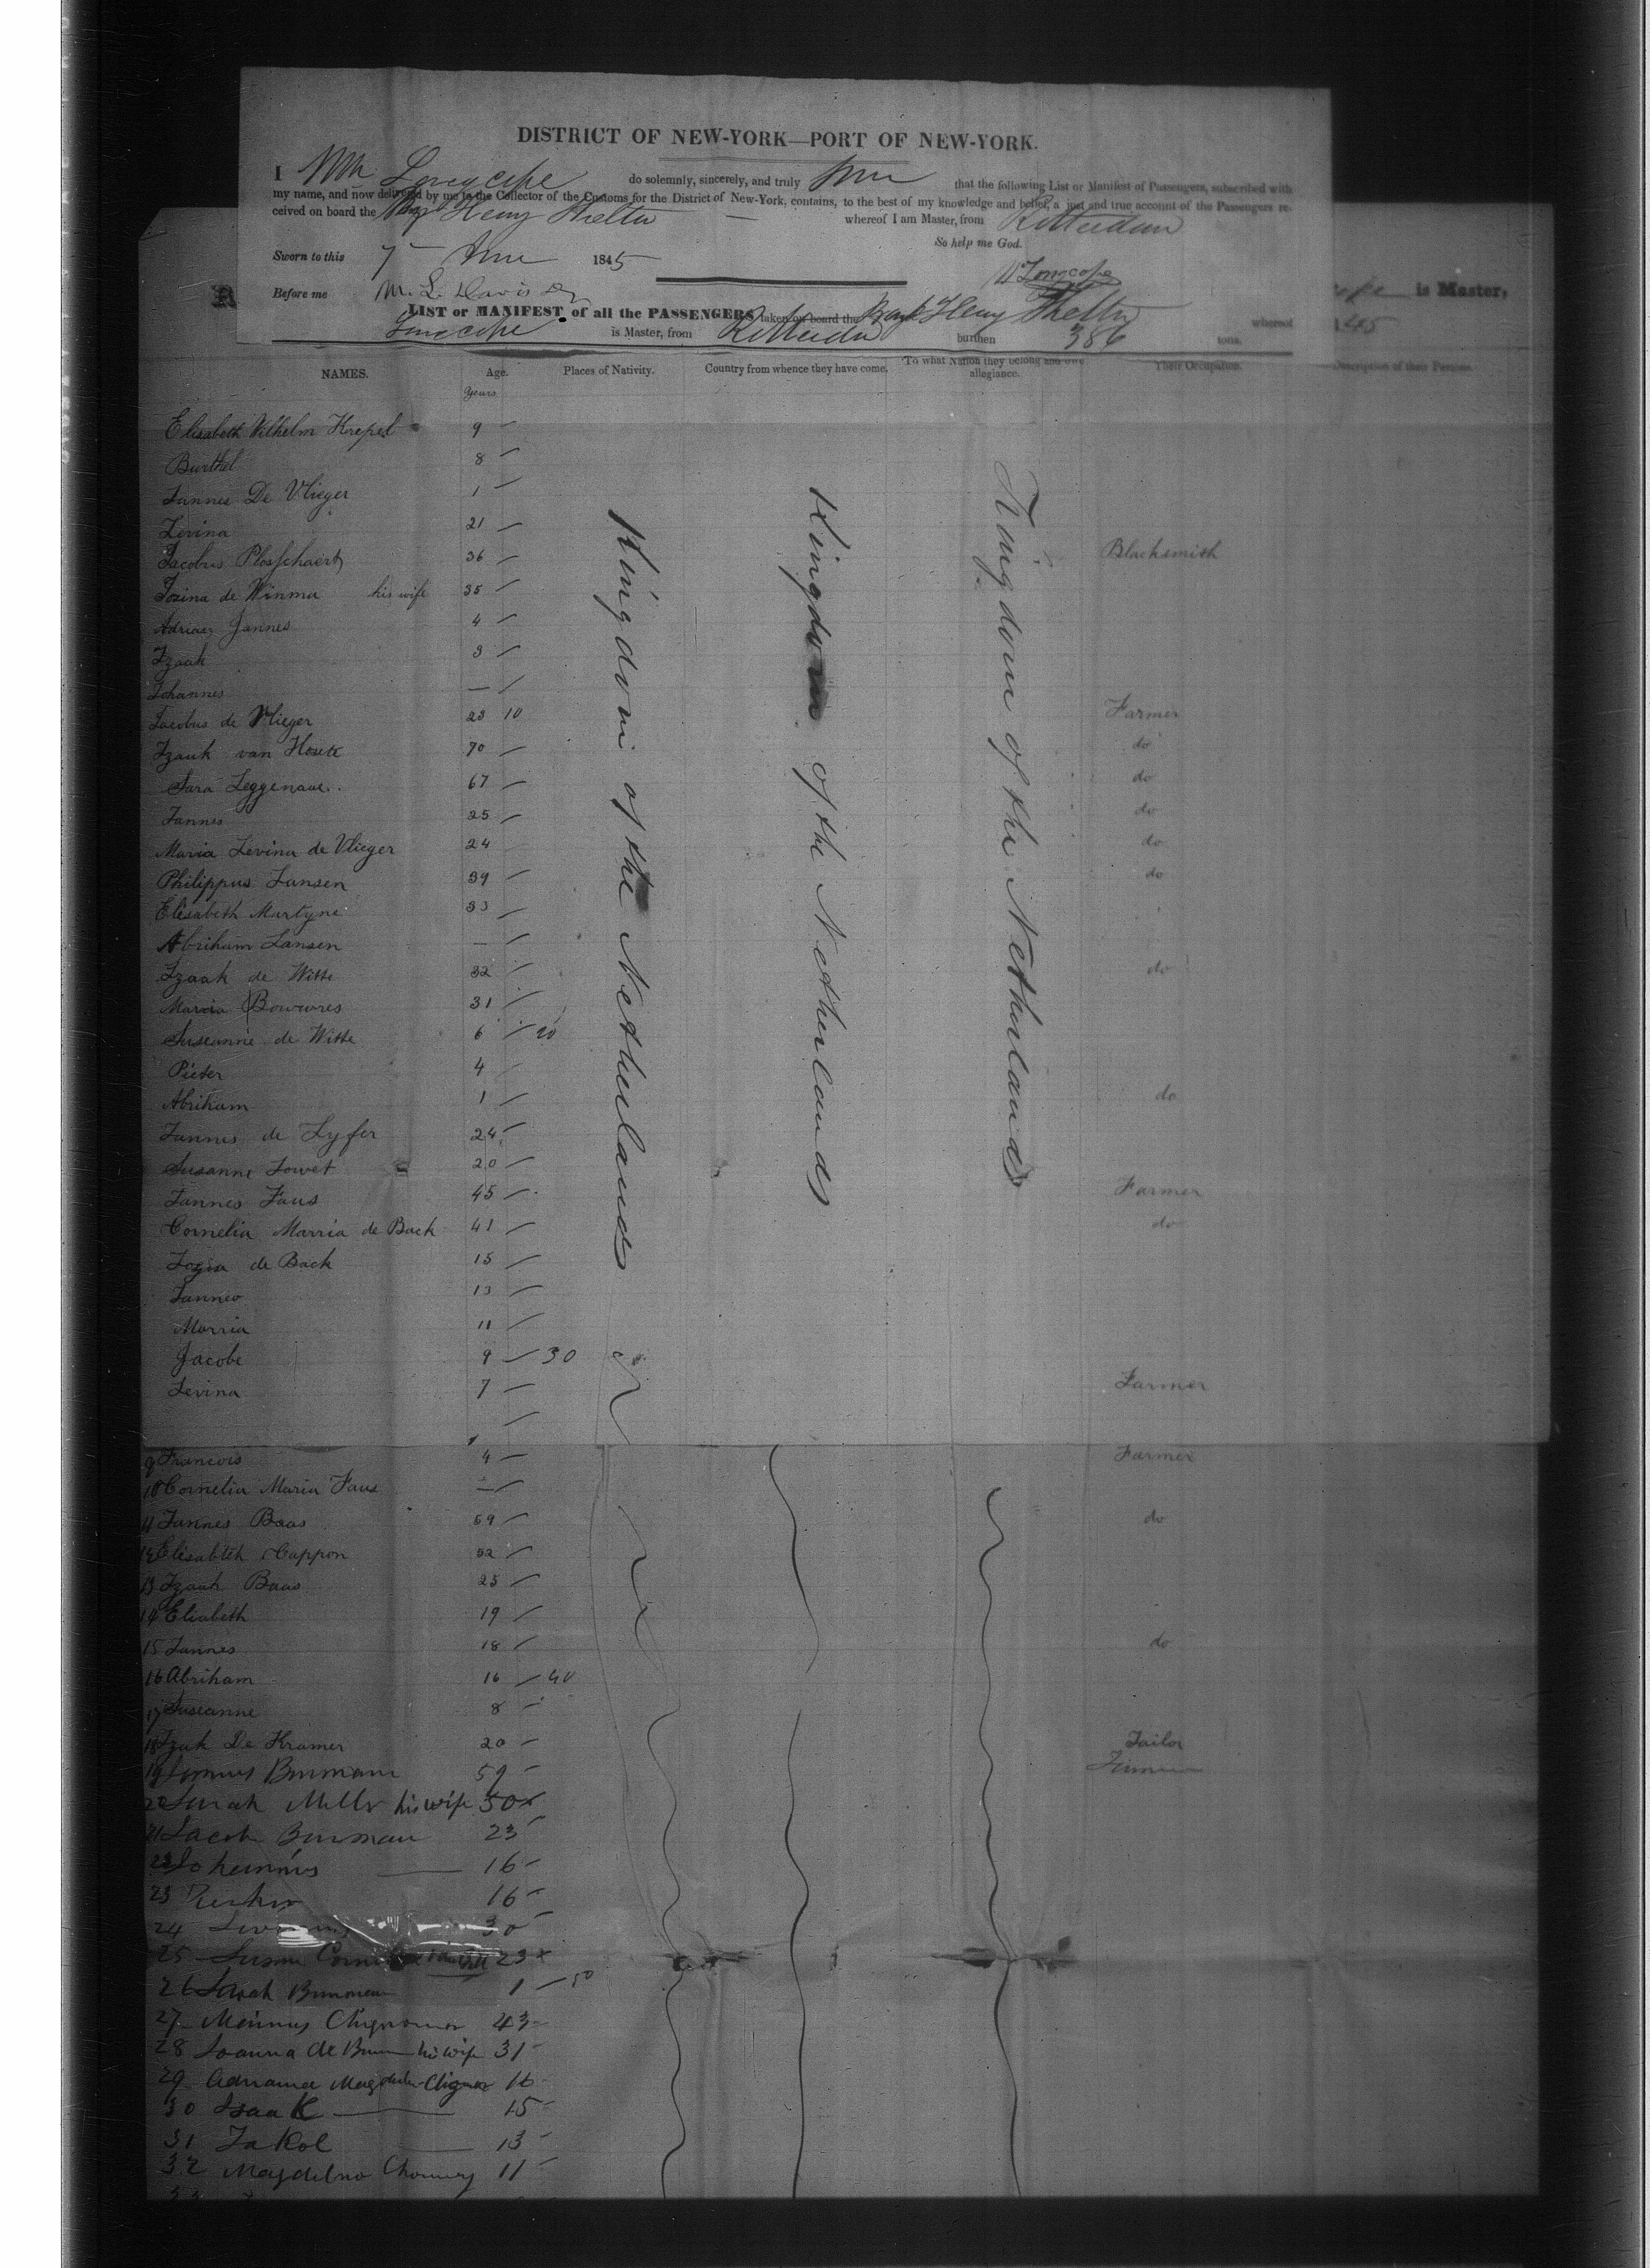 DISTRICT OF NEW-YORK—PORT OF NEW-YORK.
I Wm Longcope do solemnly, sincerely, and truly that the following List or Manifest of Passengers, subscribed with
my name, and now delivered by me to the Collector of the Customs for the District of New-York, contains, to the best of my knowledge and belief, a just and true account of the Passengers re-
ceived on board the Henry Shelton whereof I am Master, from Rotterdam
So help me God.
Sworn to this 7 June 1845
W Longcope
Before me M. L. Davis
is Master,
LIST or MANIFEST of all the PASSENGERS taken on board the Barque Henry Shelton whereof 45
Longcope is Master, from Rotterdam burthen 386 tons.
NAMES. Age. Places of Nativity. Country from whence they have come. To what Nation they belong and owe allegiance. Their Occupation. Description of their Persons.
Years
Elisabeth Wilhelm Krepel 9
Burthel 8
Jannes De Vlieger 1
Levina 21
Jacobus Plosschaert 36 Blacksmith
Jozina de Winma his wife 35
Adriaen Jannes 4
Izaak 3
Johannes —
Jacobus de Vlieger 23 10 Farmer
Izaak van Houte 70 do
Sara Leggenaue 67 do
Jannes 25 do
Maria Levina de Vlieger 24 do
Philippus Jansen 39 do
Elisabeth Martyne 33
Abriham Jansen —
Izaak de Witte 32 do
Maria Bouwres 31
Suseanne de Witte 6 20
Pieter 4
Abriham 1 do
Jannes de Lyfer 24
Susanne Jowet 20
Jannes Faus 45 Farmer
Cornelia Marria de Back 41 do
Jozia de Back 15
Jannes 13
Marria 11
Jacobe 9 30
Levina 7 Farmer
Kingdom of the Netherlands
Kingdom of the Netherlands
Kingdom of the Netherlands
9 Francois 4 Farmer
10 Cornelia Maria Faus —
11 Jannes Baas 59 do
12 Elisabteh Cappon 52
13 Izaak Baas 25
14 Elisabeth 19
15 Jannes 18 do
16 Abriham 16 40
17 Suseanne 8
18 Izak De Kramer 20 Tailor
19 59
20 Sarah Mells his wife 50
21 Jacob 23
22 Johannis 16
23 16
24 30
25 Susan 23
26 Sarah 1 50
27 43
28 Joanna de his wife 31
29 Adriana 16
30 Isaak 15
31 Jakob 13
32 Magdelna 11